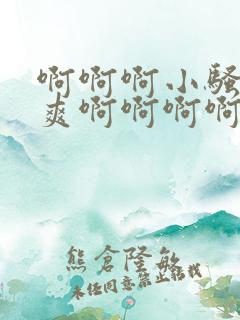 啊啊啊小骚
爽啊啊啊啊
熊倉隆敏
未经同意禁止转载